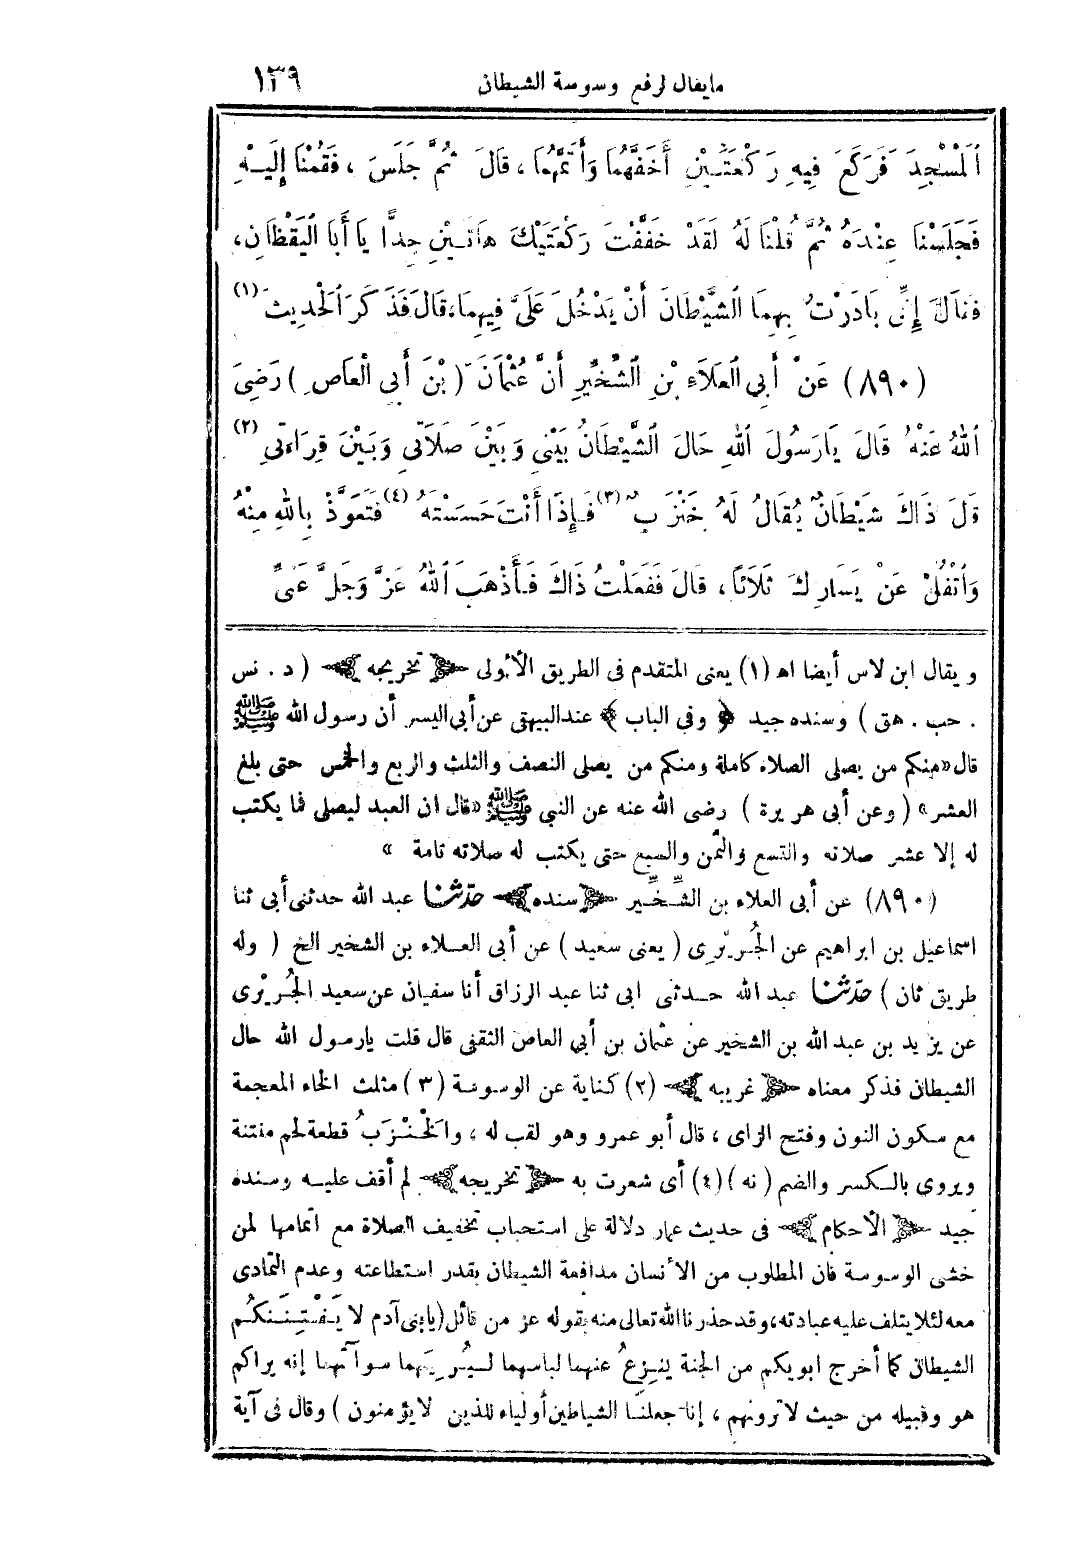 مايقال لرفع وسوسة الشيطان ١٣٩
ٱلْمَسْجِدَ فَرَكَعَ فِيهِ رَكْعَتَيْنِ أَخَفَّهُمَا وَأَتَمَّهُمَا ، قَالَ ثُمَّ جَلَسَ ، فَقُمْنَا إِلَيْهِ
فَجَلَسْنَا عِنْدَهُ ثُمَّ قُلْنَا لَهُ لَقَدْ خَفَّفْتَ رَكْعَتَيْكَ هَاتَيْنِ جِدًّا يَا أَبَا ٱلْيَقْظَانِ،
فَقَالَ إِنِّى بَادَرْتُ بِهِمَا ٱلشَّيْطَانَ أَنْ يَدْخُلَ عَلَىَّ فِيهِمَا، قَالَ فَذَكَرَ ٱلْحَدِيثَ (١)
(٨٩٠) عَنْ أَبِي ٱلْعَلَاءِ بْنِ ٱلشِّخِّيرِ أَنَّ عُثْمَانَ (بْنَ أَبِى ٱلْعَاصِ) رَضِىَ
ٱللهُ عَنْهُ قَالَ يَارَسُولَ ٱللهِ حَالَ ٱلشَّيْطَانُ بَيْنِى وَبَيْنَ صَلَاتِى وَبَيْنَ قِرَاءَتِى (٢)
قَلَ ذَاكَ شَيْطَانٌ يُقَالُ لَهُ خِنْزَبٌ (٣) فَإِذَا أَنْتَ حَسَسْتَهُ (٤) فَتَعَوَّذْ بِاللهِ مِنْهُ
وَٱتْفُلْ عَنْ يَسَارِكَ ثَلَاثًا، قَالَ فَفَعَلْتُ ذَاكَ فَأَذْهَبَ ٱللهُ عَزَّ وَجَلَّ عَنِّى
ويقال ابن لاس أيضا اه (١) يعنى المتقدم فى الطريق الأولى ﴿ تخريجه ﴾ (د . نس
. حب . هق) وسنده جيد ﴿ وفى الباب ﴾ عند البيهقى عن أبى اليسر أن رسول الله ﷺ
قال «منكم من يصلى الصلاة كاملة ومنكم من يصلى النصف والثلث والربع والخمس حتى بلغ
العشر» (وعن أبى هريرة) رضى الله عنه عن النبى ﷺ «قال ان العبد ليصلى فما يكتب
له إلا عشر صلاته والتسع والثمن والسبع حتى يكتب له صلاته تامة »
(٨٩٠) عن أبى العلاء بن الشِّخِّير ﴿ سنده ﴾ حدّثنا عبد الله حدثنى أبى ثنا
اسماعيل بن ابراهيم عن الجُرَيْرِى (يعنى سعيد) عن أبى العلاء بن الشخير الخ (وله
طريق ثان) حدّثنا عبد الله حدثنى ابى ثنا عبد الرزاق أنا سفيان عن سعيد الجُرَيْرى
عن يزيد بن عبد الله بن الشخير عن عثمان بن أبي العاص الثقفى قال قلت يارسول الله حال
الشيطان فذكر معناه ﴿ غريبه ﴾ (٢) كناية عن الوسوسة (٣) مثلث الخاء المعجمة
مع سكون النون وفتح الزاى ، قال أبو عمرو وهو لقب له ، والخُنْزَبُ قطعة لحم منتنة
ويروى بالكسر والضم (نه) (٤) أى شعرت به ﴿ تخريجه ﴾ لم أقف عليه وسنده
جيد ﴿ الأحكام ﴾ فى حديث عمار دلالة على استحباب تخفيف الصلاة مع اتمامها لمن
خشى الوسوسة فان المطلوب من الأنسان مدافعة الشيطان بقدر استطاعته وعدم التمادى
معه لئلا يتلف عليه عبادته، وقد حذرنا الله تعالى منه بقوله عز من قائل (يابنى آدم لا يَفْتِنَنَكُم
الشيطان كما أخرج ابويكم من الجنة ينزِعُ عنهما لباسهما ليُرِيَهما سوآتهما إنه يراكم
هو وقبيله من حيث لا ترونهم ، إنا جعلنا الشياطين أولياء للذين لايؤمنون) وقال فى آية